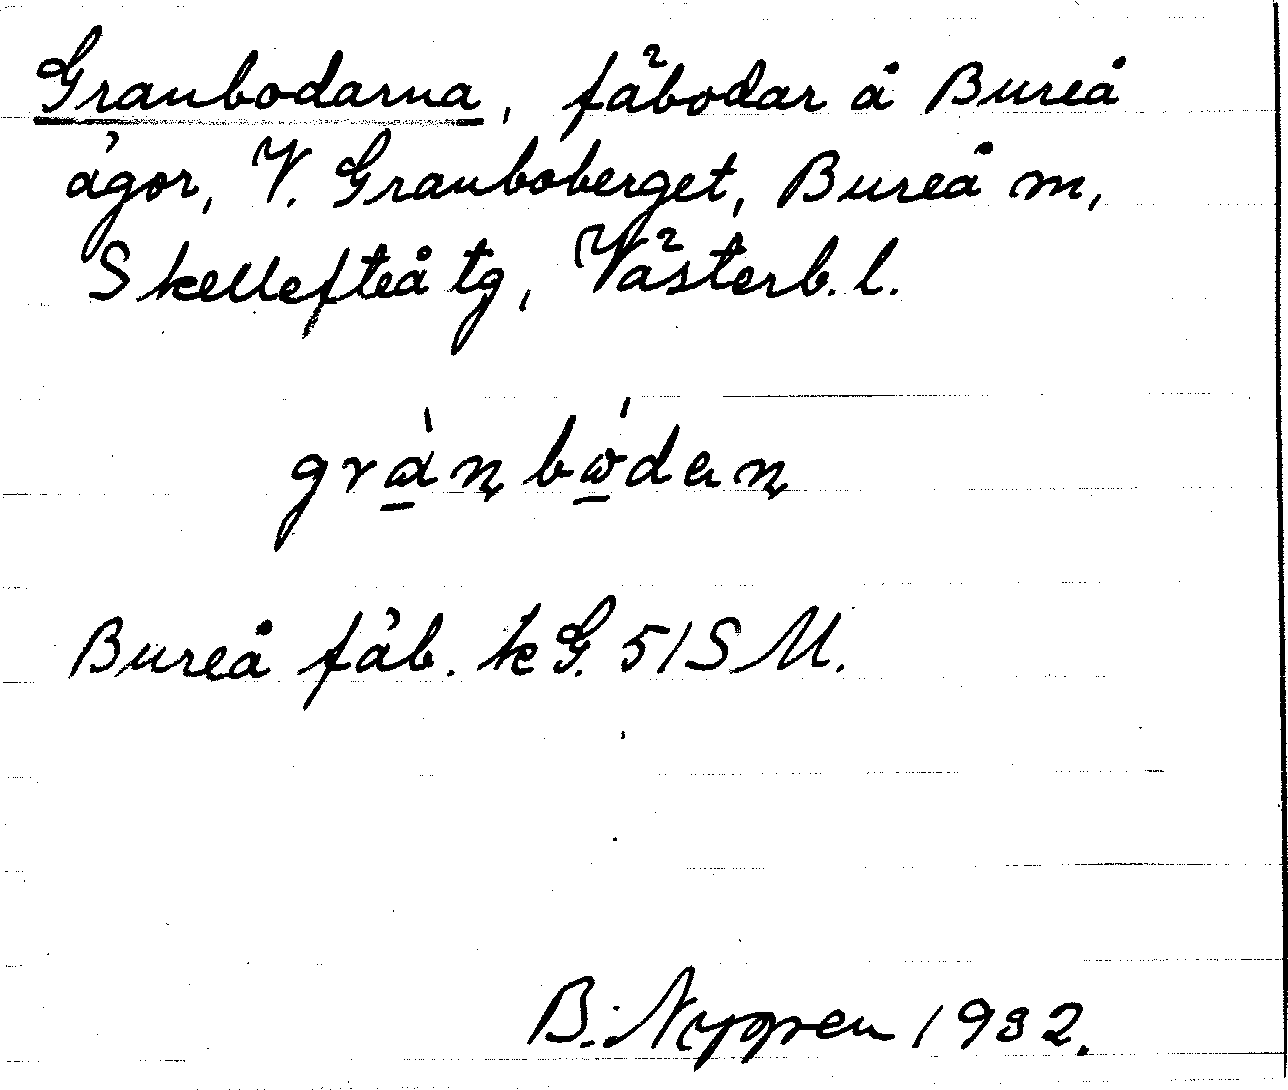 Granbodarna, fäbodar å Bureå
ägor, V. Granboberget, Bureå m,
Skellefteå tg, Västerb. l.
Bureå fäb. k G. 51 S M.
B. Nygren 1932.